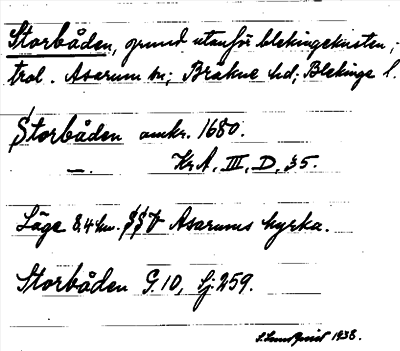 Storbåden, grund utanför blekingekusten;
trol. Asarum sn; Bräkne hd; Blekinge l.
Storbåden omkr. 1680.
—. Kr.A, III, D, 35.
Läge 8,4 km. SSV Asarums kyrka.
Storbåden G.10, Sj. 259.
S. Lundqvist 1938.